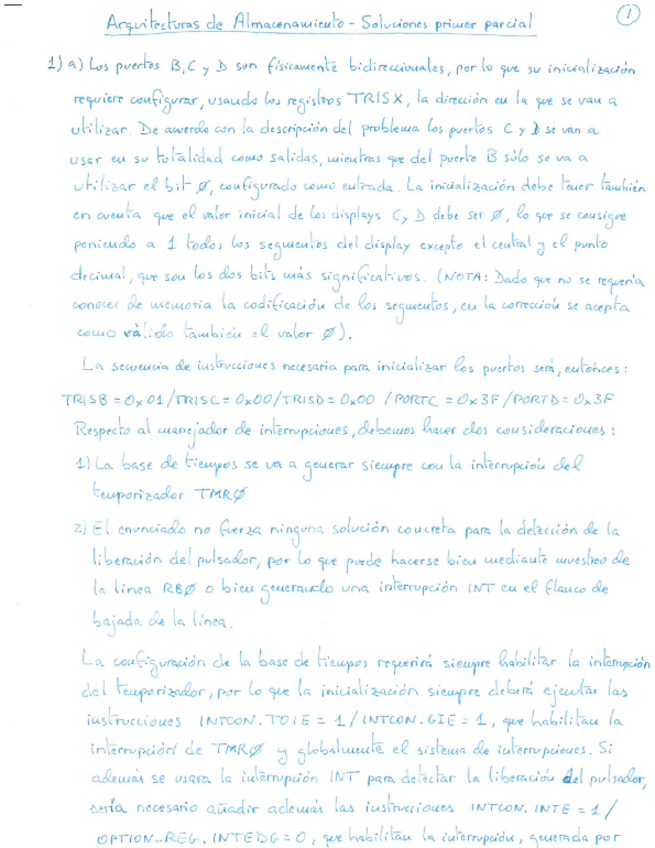 Arquitecturas de Almacenamiento - Soluciones primer parcial
1
1) a) Los puertos B, C y D son físicamente bidireccionales, por lo que su inicialización
requiere configurar, usando los registros TRISX, la dirección en la que se van a
utilizar. De acuerdo con la descripción del problema los puertos C y D se van a
usar en su totalidad como salidas, mientras que del puerto B sólo se va a
utilizar el bit Ø, configurado como entrada. La inicialización debe tener también
en cuenta que el valor inicial de los displays C y D debe ser Ø, lo que se consigue
poniendo a 1 todos los segmentos del display excepto el central y el punto
decimal, que son los dos bits más significativos. (NOTA: Dado que no se requería
conocer de memoria la codificación de los segmentos, en la corrección se acepta
como válido también el valor Ø).
La secuencia de instrucciones necesaria para inicializar los puertos será, entonces:
TRISB = 0x01 / TRISC = 0x00 / TRISD = 0x00 / PORTC = 0x3F / PORTD = 0x3F
Respecto al manejador de interrupciones, debemos hacer dos consideraciones:
1) La base de tiempos se va a generar siempre con la interrupción del
temporizador TMRØ
2) El enunciado no fuerza ninguna solución concreta para la detección de la
liberación del pulsador, por lo que puede hacerse bien mediante muestreo de
la línea RBØ o bien generando una interrupción INT en el flanco de
bajada de la línea.
La configuración de la base de tiempos requerirá siempre habilitar la interrupción
del temporizador, por lo que la inicialización siempre deberá ejecutar las
instrucciones INTCON.TOIE = 1 / INTCON.GIE = 1, que habilitan la
interrupción de TMRØ y globalmente el sistema de interrupciones. Si
además se usara la interrupción INT para detectar la liberación del pulsador,
sería necesario añadir además las instrucciones INTCON.INTE = 1 /
OPTION_REG.INTEDG = 0, que habilitan la interrupción, generada por